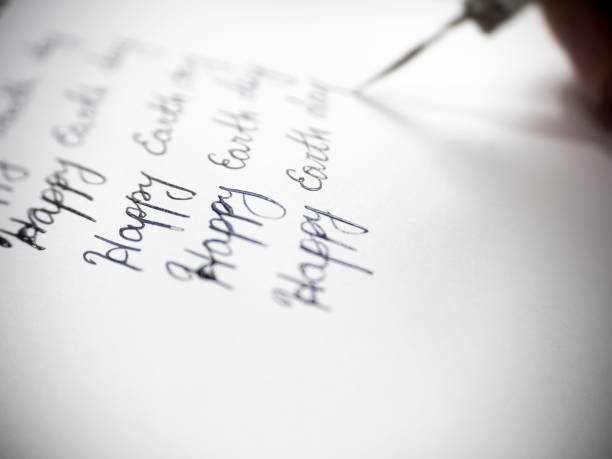 Happy Earth day
Happy Earth day
Happy Earth day
Happy Earth day